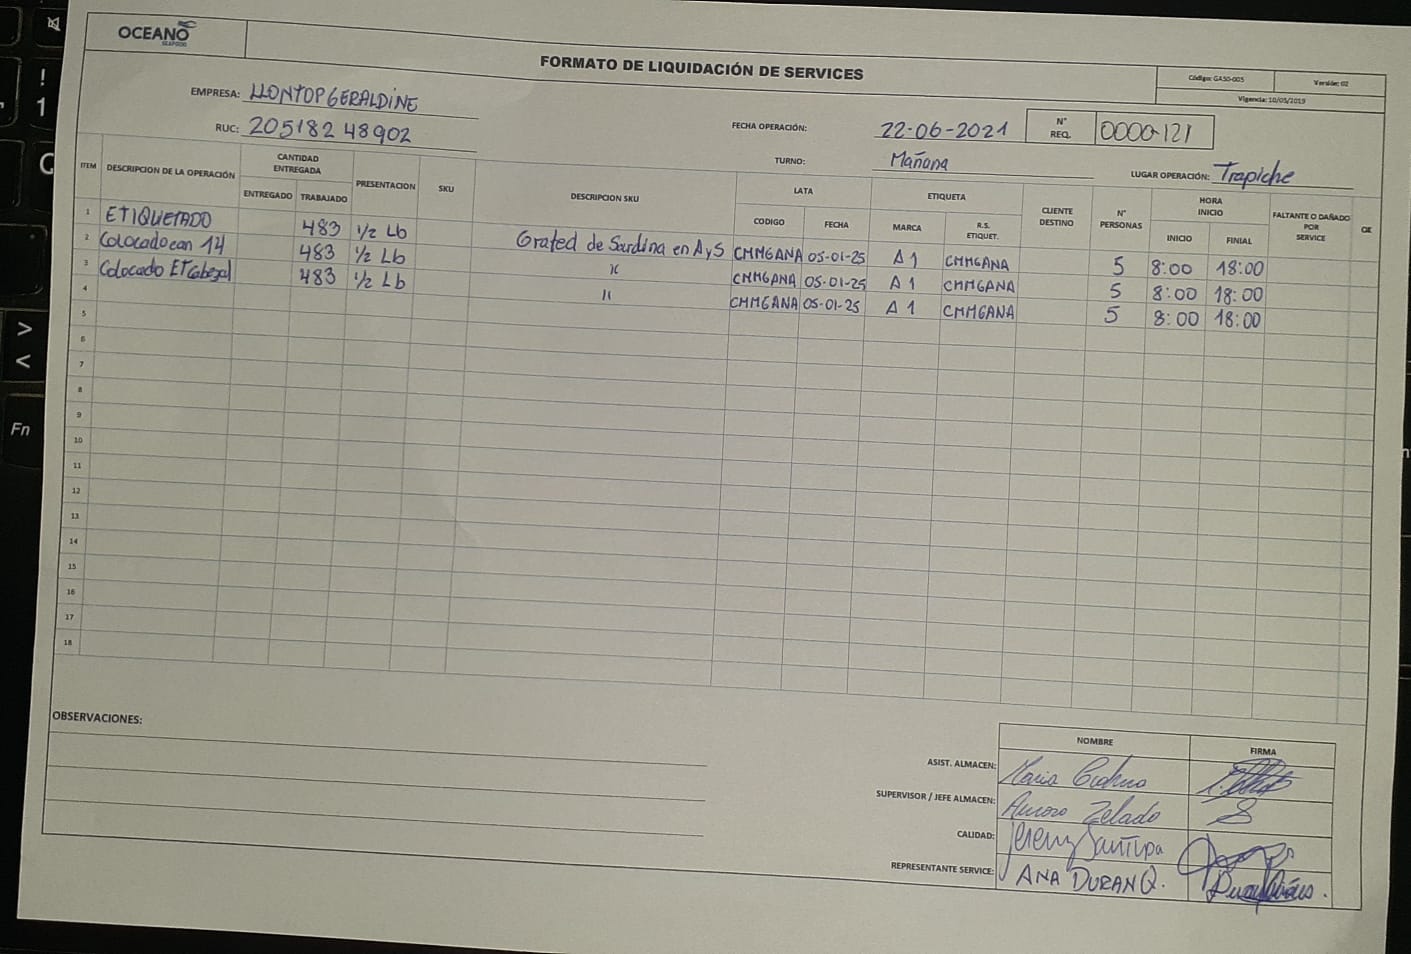 OCEANO
SEAFOOD
FORMATO DE LIQUIDACIÓN DE SERVICES
Código: GASO-005 Versión: 02
Vigencia: 10/05/2019
EMPRESA: LLONTOP GERALDINE
RUC: 20518248902
FECHA OPERACIÓN: 22-06-2021
N° REQ. 0000-121
TURNO: Mañana
LUGAR OPERACIÓN: Trapiche
ITEM DESCRIPCION DE LA OPERACIÓN CANTIDAD ENTREGADA PRESENTACION SKU DESCRIPCION SKU LATA ETIQUETA CLIENTE DESTINO N° PERSONAS HORA INICIO FALTANTE O DAÑADO POR SERVICE
ENTREGADO TRABAJADO CODIGO FECHA MARCA R.S. ETIQUET. INICIO FINIAL
1 ETIQUETADO 483 1/2 Lb Grated de Sardina en AyS CMMGANA 05-01-25 A1 CMMGANA 5 8:00 18:00
2 Colocado can 14 483 1/2 Lb " CMMGANA 05-01-25 A1 CMMGANA 5 8:00 18:00
3 Colocado ET Cabezal 483 1/2 Lb " CMMGANA 05-01-25 A1 CMMGANA 5 8:00 18:00
4
5
6
7
8
9
10
11
12
13
14
15
16
17
18
OBSERVACIONES:
NOMBRE FIRMA
ASIST. ALMACEN: Maria
SUPERVISOR / JEFE ALMACEN: Zelado
CALIDAD: Santupa
REPRESENTANTE SERVICE: ANA DURAN Q.
!
1
>
<
Fn